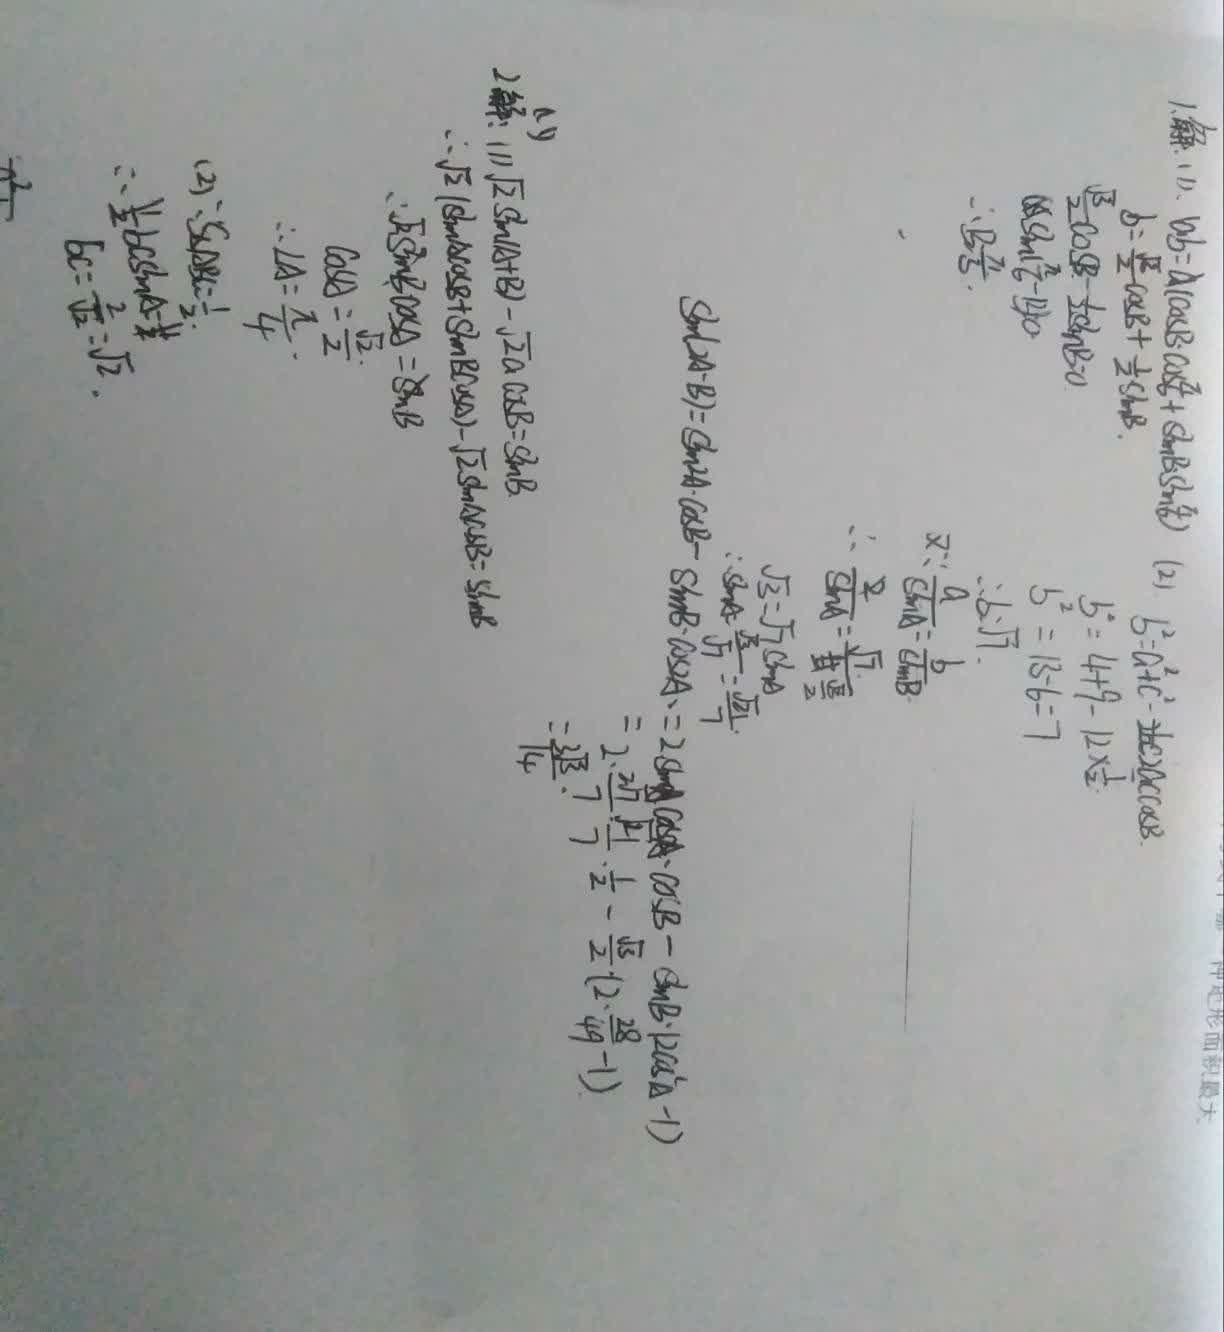 1.解:(1). b = a(cosB·cosπ/6 + sinB·sinπ/6)
b = √3/2 cosB + 1/2 sinB.
√3/2 cosB - 1/2 sinB=0.
∴ B=π/3.
(2) b²=a²+c²-2accosB.
b² = 4+9-12×1/2.
b² = 13-6=7
∴ b=√7.
又∵ a/sinA = b/sinB.
∴ 2/sinA = √7/(√3/2)
√3=√7 sinA
∴ sinA=√3/√7=√21/7.
sin(2A-B)=sin2A·cosB-sinB·cos2A.=2sinAcosA·cosB-sinB·(2cos²A-1)
= 2·2√7/7·√21/7·1/2-√3/2·(2·28/49-1)
= 3√3/14.
2解:(1) √2sin(A+B)-√2a cosB=sinB.
∴ √2(sinAcosB+sinBcosA)-√2sinAcosB=sinB
∴ √2sinBcosA=sinB
cosA=√2/2.
∴ ∠A=π/4.
(2) ∵ S△ABC=1/2.
∴ 1/2bcsinA=1/2
bc=2/√2=√2.
种地形面积最大